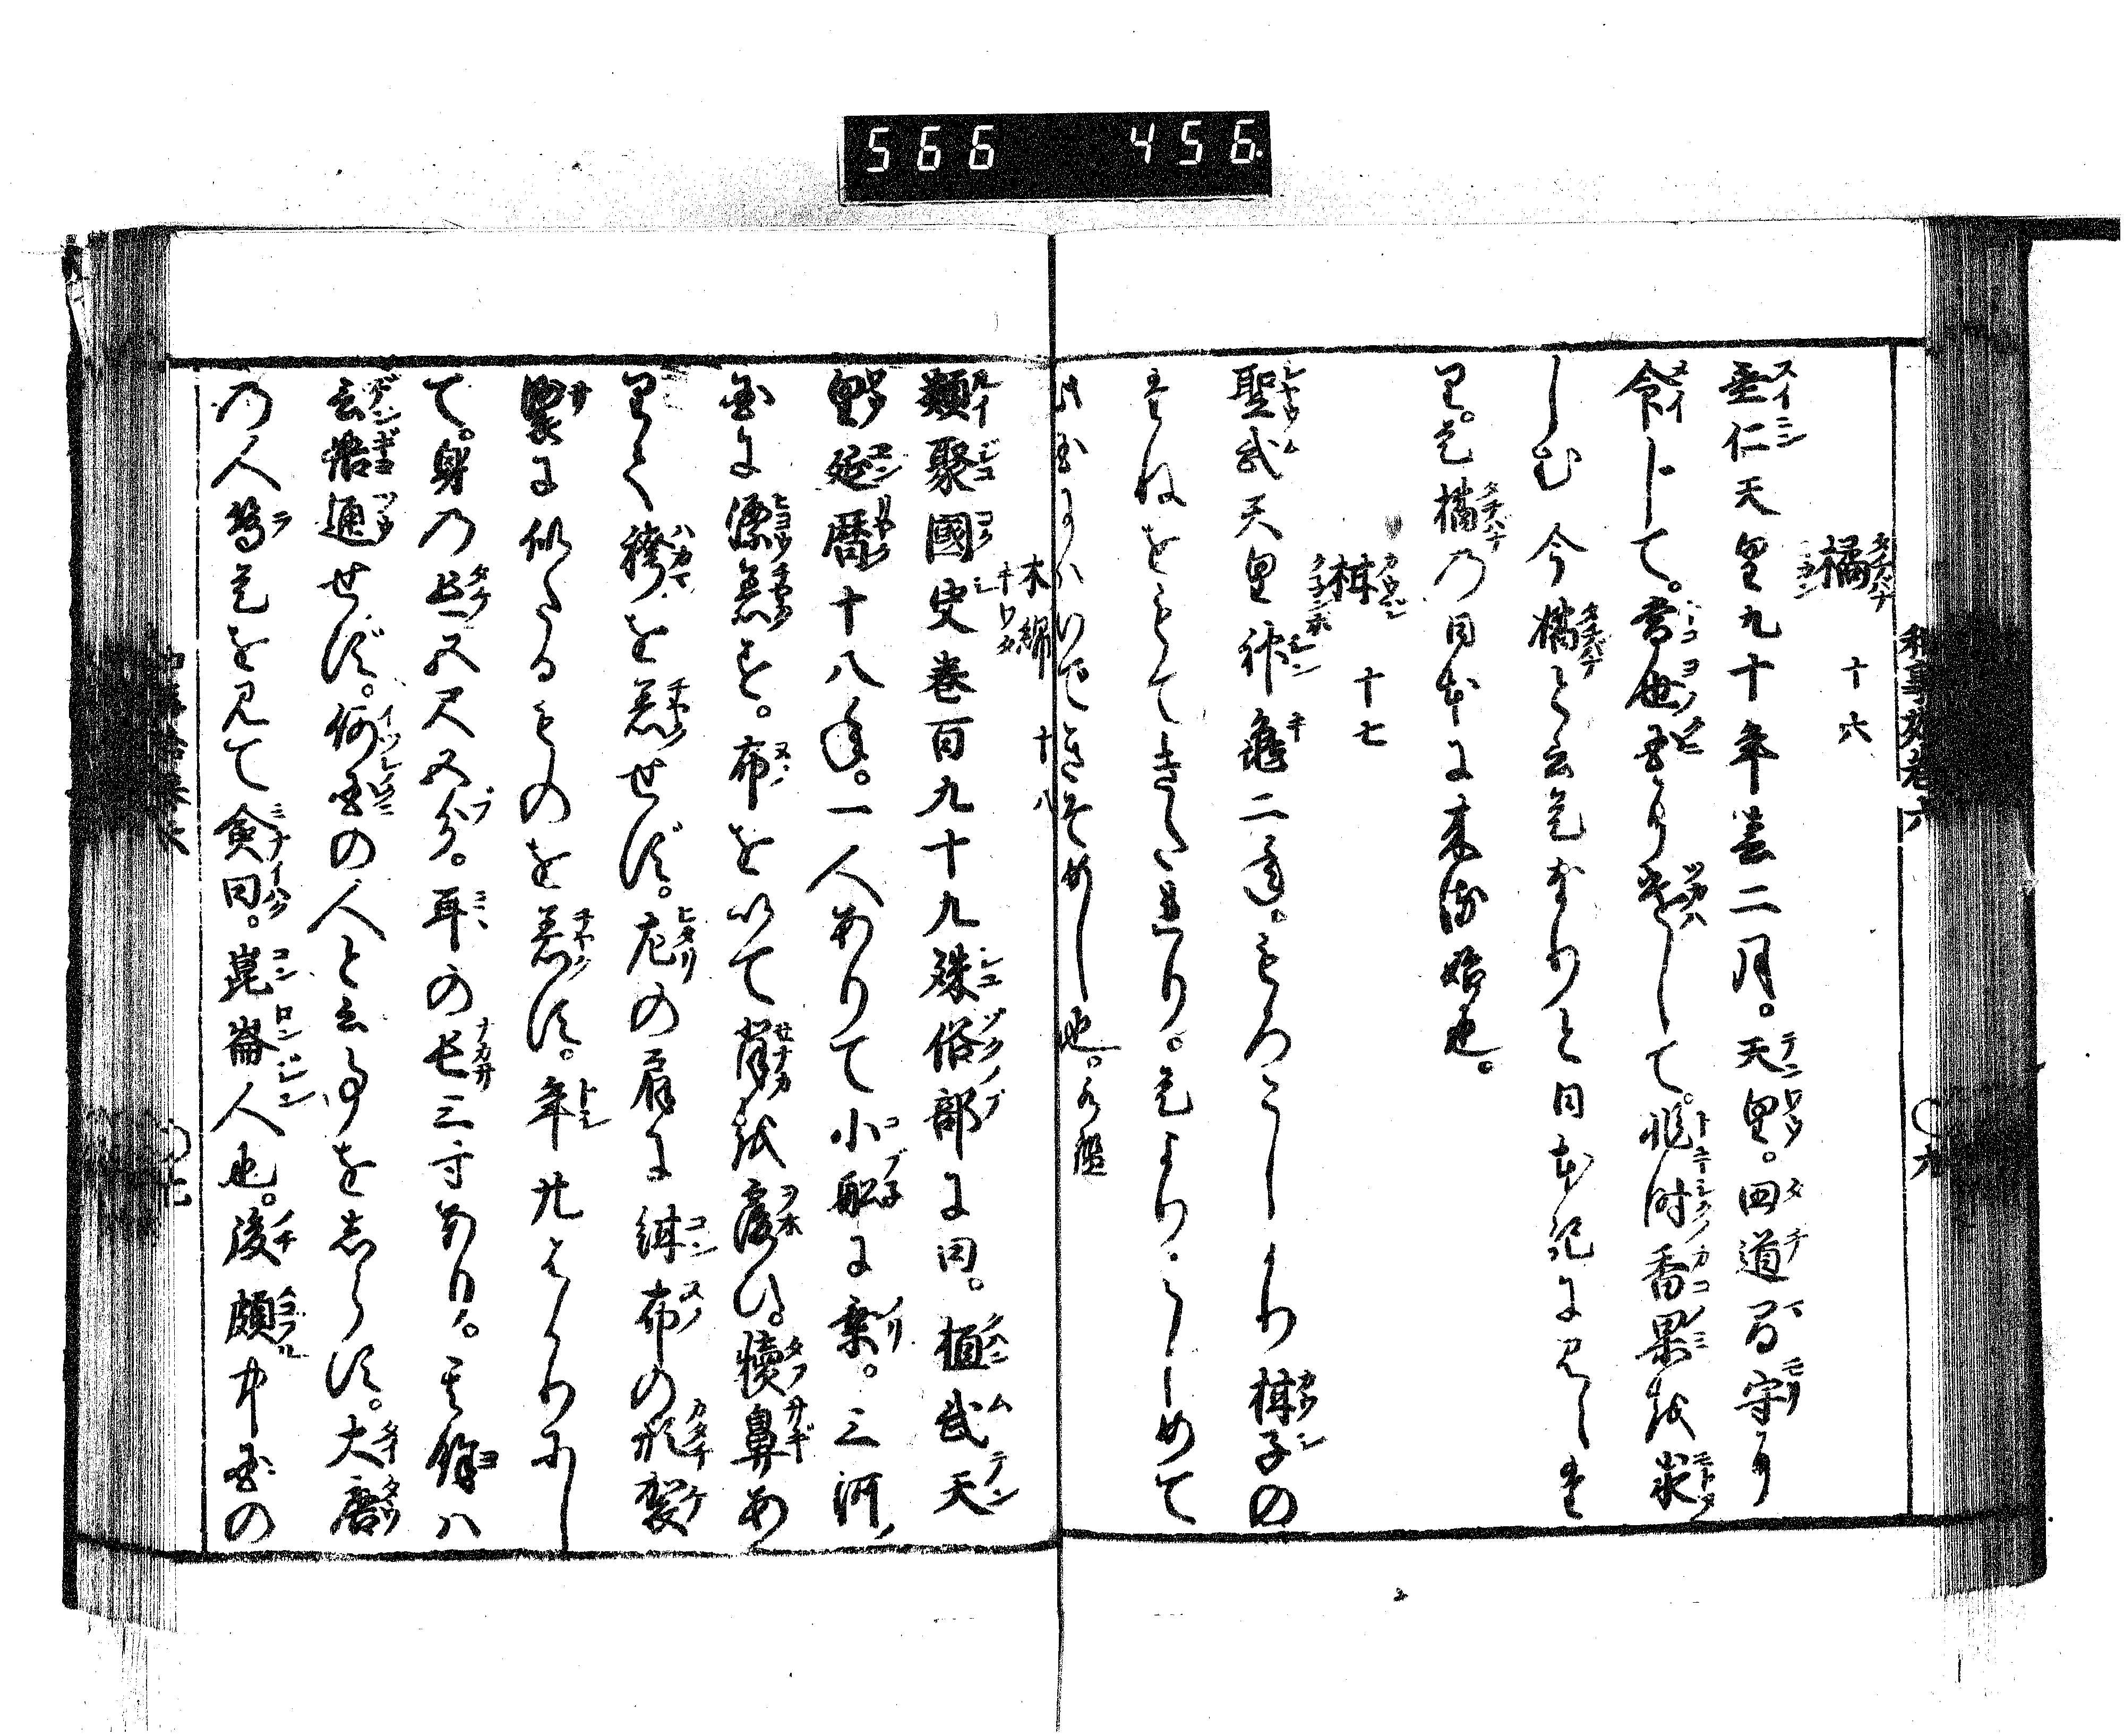 566 456
橘 十六
垂仁天皇九十年春二月。天皇。田道間守に
令して。常世国に遣して。非時香果を求
しむ今橘と云是なりと日本記に見えた
り。是橘の日本に来る始也。
柑 十七
聖武天皇神亀二年。もろこしより柑子の
たねをもてきたれり。是より・はしめて
此国にうへ
也。
木綿 十八
類聚國史巻百九十九殊俗部に曰。桓武天
皇延暦十八年。一人ありて小船に乗。三河ノ
国に漂着す。布を以て背を覆ひ。犢鼻あ
りて袴を着せず。左の肩に紺布の形袈
裟に似たるものを着す。年廿はかりにし
て。身の長五尺五分。耳の長三寸あり。其餘ハ
言語通せず。何国の人と云事を志らす。大唐
の人等是を見て僉曰。崑崙人也。後頗中国の